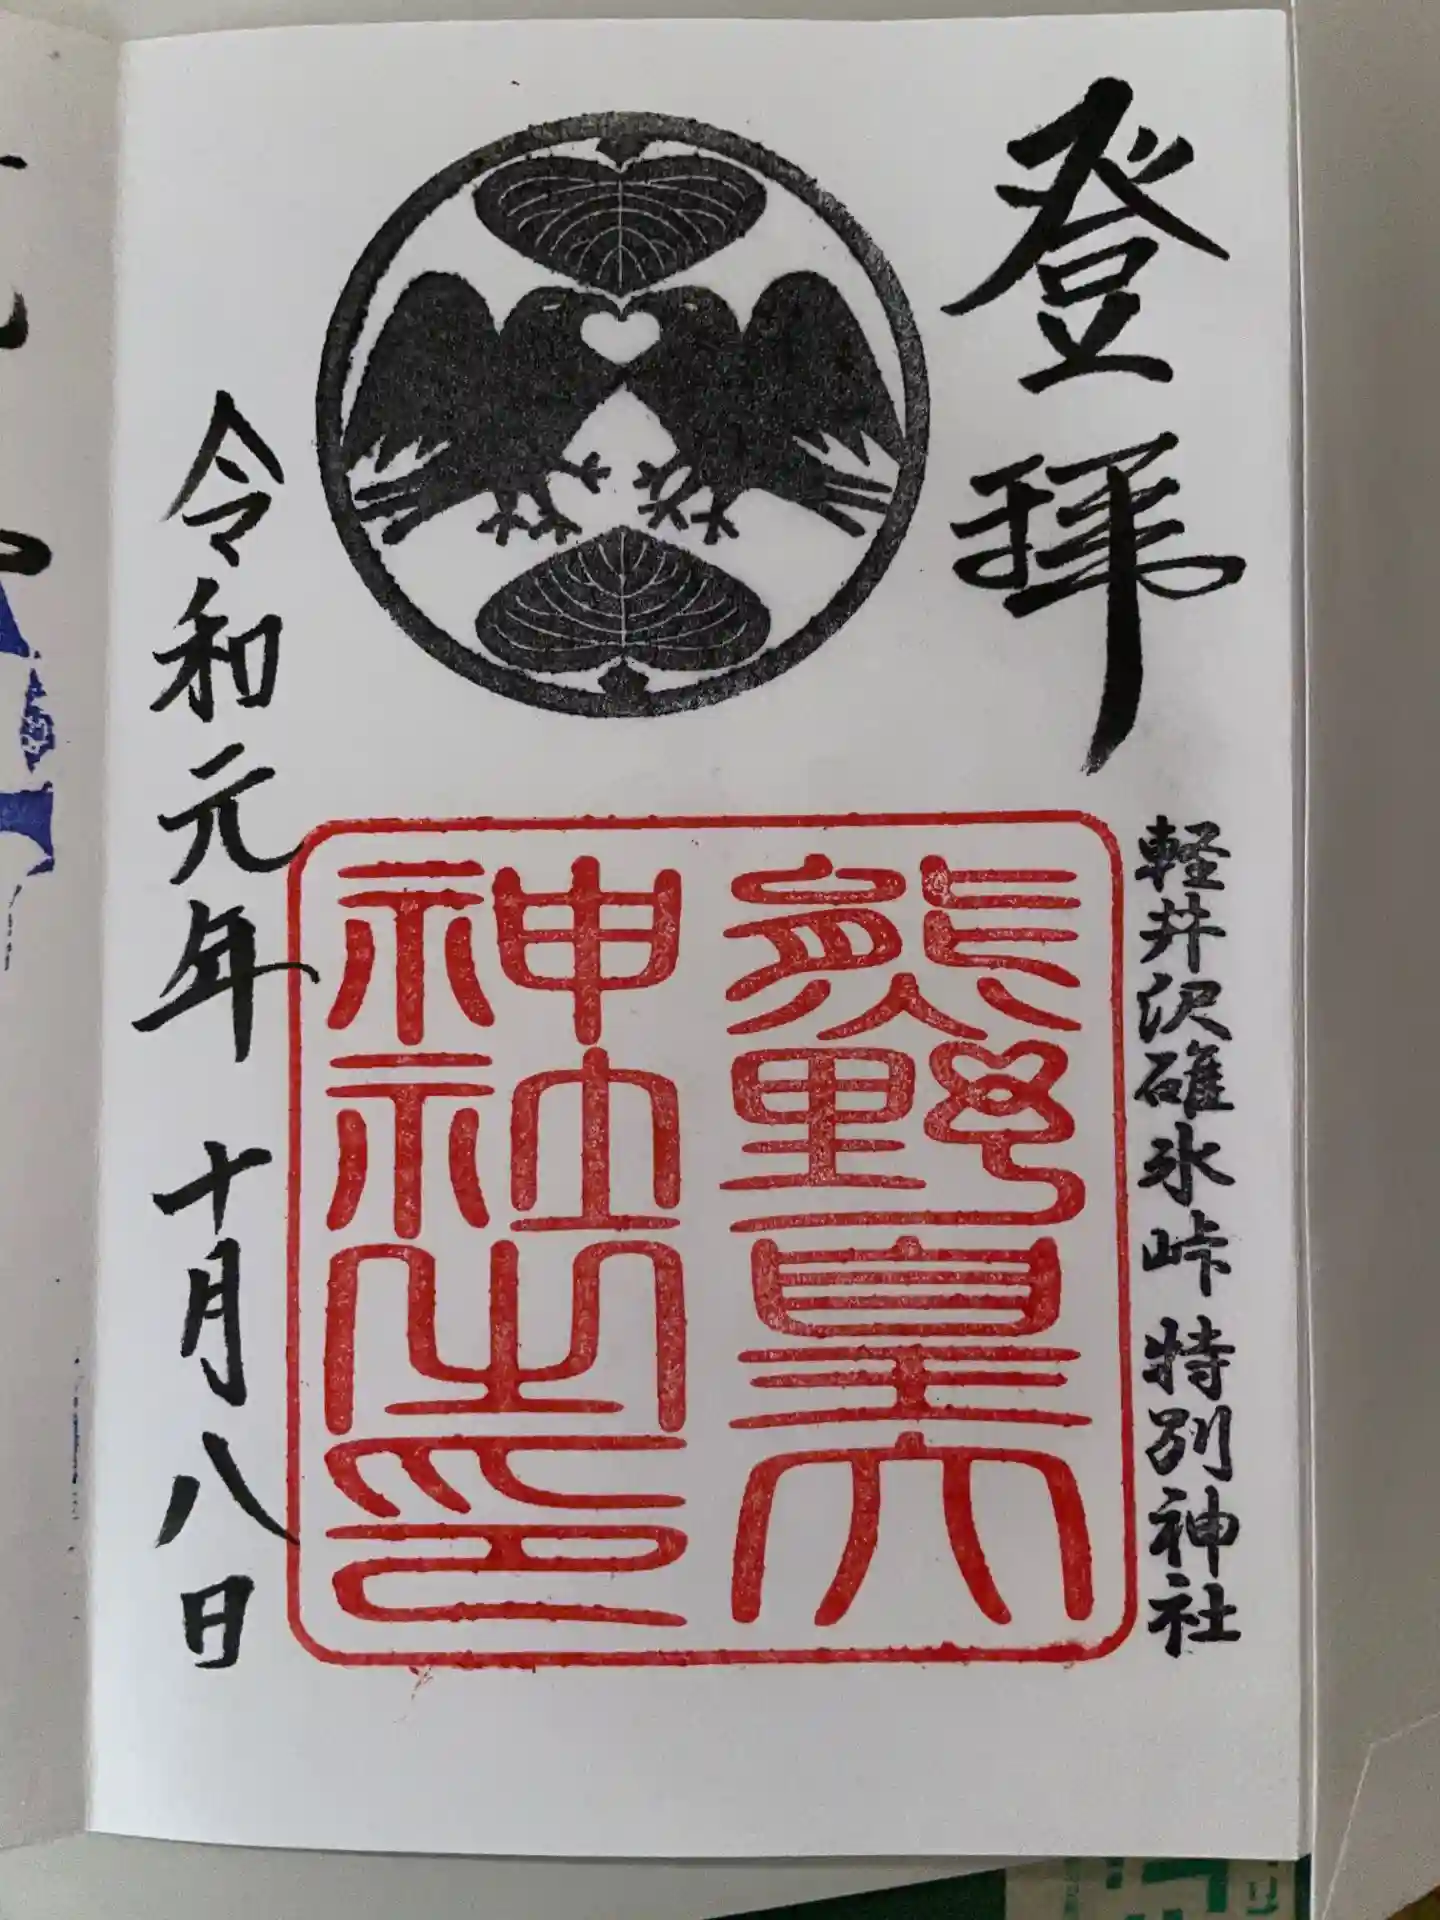 登拝
軽井沢碓氷峠 特別神社
熊野皇大
神社之印
令和元年 十月八日